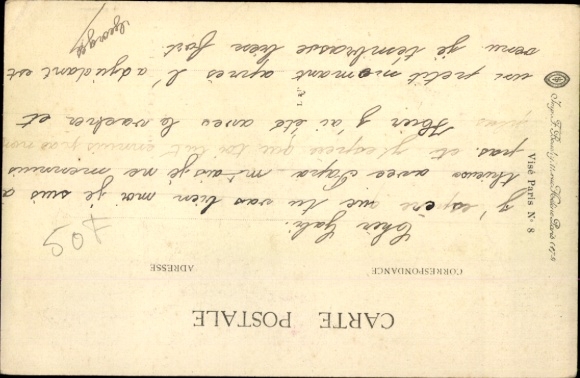 CARTE POSTALE
CORRESPONDANCE
ADRESSE
507
Cher Gabi.
j'espère que tu vas bien moi je suis a
avec Papa mais je ne mennuis
pas et j'espère que toi tut ennuis pas non
plus Hier j'ai été avec le vacher et
un petit momant après l'adjudant est
venu je t'embrasse bien fort
Georges
Visé Paris N° 8